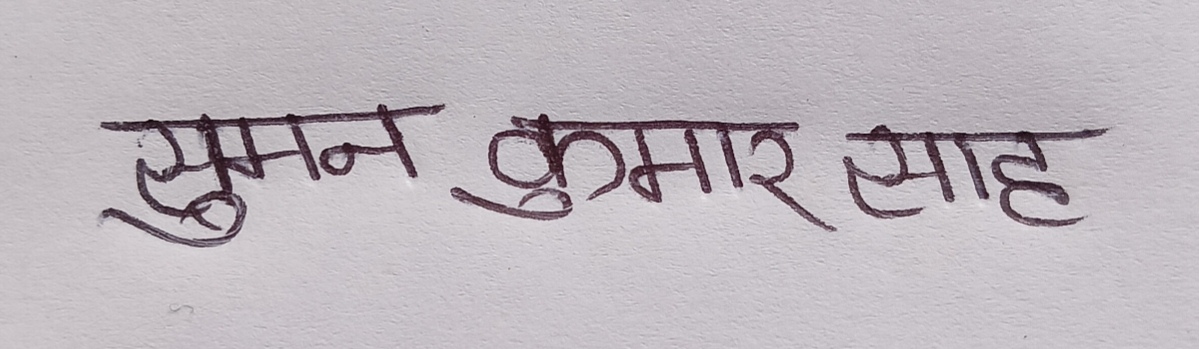 सुमन कुमार साह